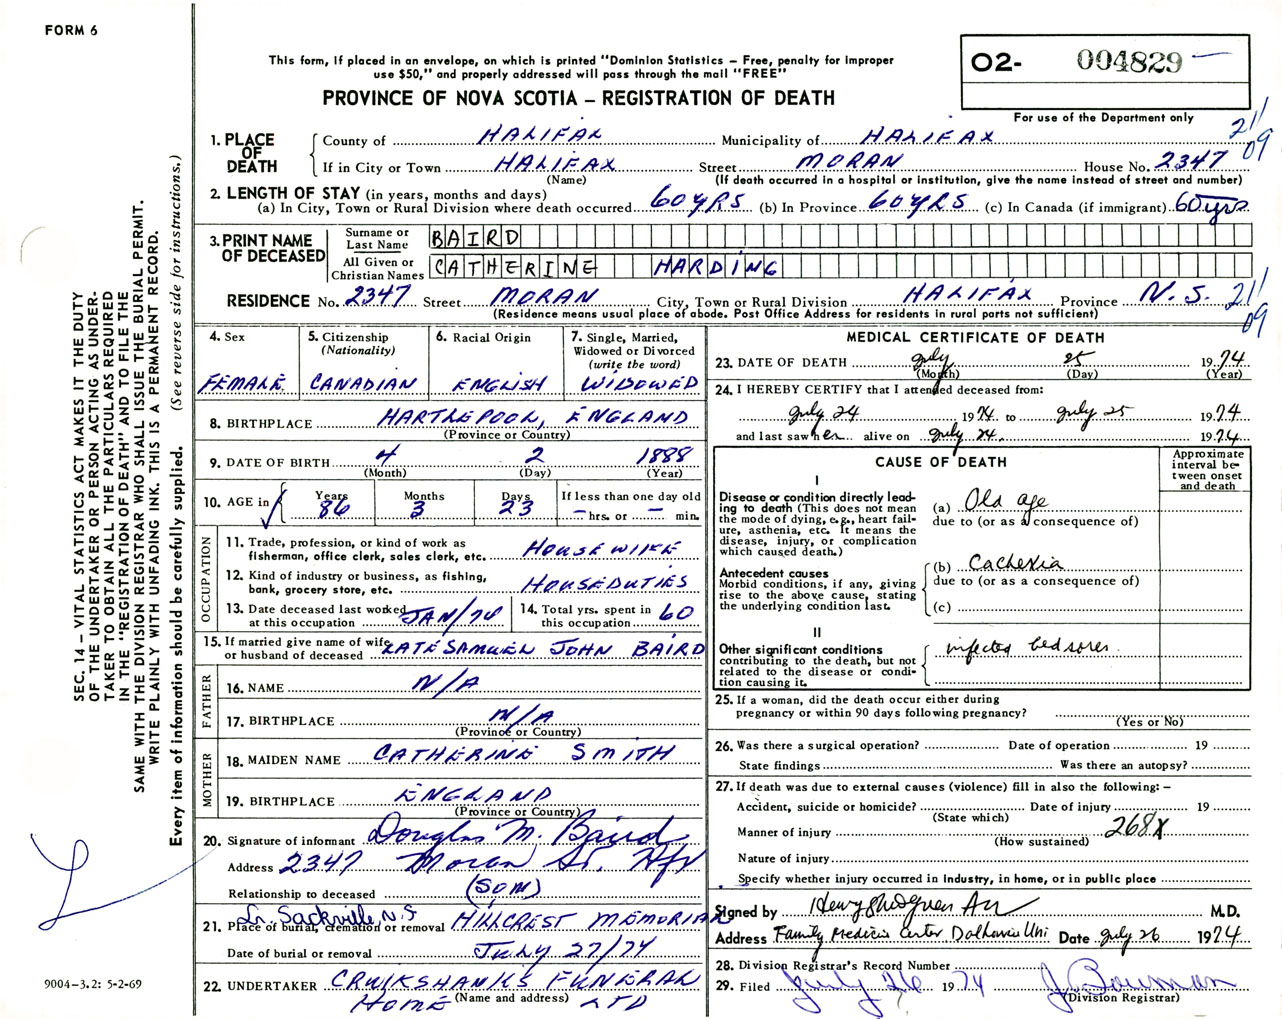 FORM 6
This form, if placed in an envelope, on which is printed "Dominion Statistics – Free, penalty for improper
use $50," and properly addressed will pass through the mail "FREE"
PROVINCE OF NOVA SCOTIA – REGISTRATION OF DEATH
O2- 004829
For use of the Department only
211
09
1. PLACE OF DEATH
County of HALIFAX Municipality of HALIFAX
If in City or Town HALIFAX Street MORAN House No. 2347
(Name) (If death occurred in a hospital or institution, give the name instead of street and number)
2. LENGTH OF STAY (in years, months and days)
(a) In City, Town or Rural Division where death occurred 60 YRS (b) In Province 60 YRS (c) In Canada (if immigrant) 60 yrs
3. PRINT NAME OF DECEASED
Surname or Last Name BAIRD
All Given or Christian Names CATHERINE HARDING
RESIDENCE No. 2347 Street MORAN City, Town or Rural Division HALIFAX Province N.S.
(Residence means usual place of abode. Post Office Address for residents in rural parts not sufficient)
211
09
4. Sex
FEMALE
5. Citizenship
(Nationality)
CANADIAN
6. Racial Origin
ENGLISH
7. Single, Married,
Widowed or Divorced
(write the word)
WIDOWED
8. BIRTHPLACE HARTLEPOOL, ENGLAND
(Province or Country)
9. DATE OF BIRTH 4 2 1888
(Month) (Day) (Year)
10. AGE in
Years Months Days If less than one day old
86 3 23 – hrs. or – min.
OCCUPATION
11. Trade, profession, or kind of work as
fisherman, office clerk, sales clerk, etc. HOUSEWIFE
12. Kind of industry or business, as fishing,
bank, grocery store, etc. HOUSEDUTIES
13. Date deceased last worked
at this occupation JAN/74
14. Total yrs. spent in
this occupation 60
15. If married give name of wife
or husband of deceased LATE SAMUEL JOHN BAIRD
FATHER
16. NAME N/A
17. BIRTHPLACE N/A
(Province or Country)
MOTHER
18. MAIDEN NAME CATHERINE SMITH
19. BIRTHPLACE ENGLAND
(Province or Country)
20. Signature of informant Douglas M. Baird
Address 2347 Moran St. Hfx
Relationship to deceased (SON)
Lr. Sackville N.S
21. Place of burial, cremation or removal HILLCREST MEMORIAL
Date of burial or removal JULY 27/74
22. UNDERTAKER CRUIKSHANKS FUNERAL
HOME (Name and address) LTD
MEDICAL CERTIFICATE OF DEATH
23. DATE OF DEATH July 25 1974
(Month) (Day) (Year)
24. I HEREBY CERTIFY that I attended deceased from:
July 24 1974 to July 25 1974
and last saw her alive on July 24. 1974
CAUSE OF DEATH
Approximate
interval be-
tween onset
and death
I
Disease or condition directly lead-
ing to death (This does not mean
the mode of dying, e.g., heart fail-
ure, asthenia, etc. It means the
disease, injury, or complication
which caused death.)
(a) Old age
due to (or as a consequence of)
Antecedent causes
Morbid conditions, if any, giving
rise to the above cause, stating
the underlying condition last.
(b) Cachexia
due to (or as a consequence of)
(c)
II
Other significant conditions
contributing to the death, but not
related to the disease or condi-
tion causing it.
infected bedsores
25. If a woman, did the death occur either during
pregnancy or within 90 days following pregnancy?
(Yes or No)
26. Was there a surgical operation? Date of operation 19
State findings Was there an autopsy?
27. If death was due to external causes (violence) fill in also the following: –
Accident, suicide or homicide? Date of injury 19
(State which)
Manner of injury 268X
(How sustained)
Nature of injury
Specify whether injury occurred in industry, in home, or in public place
Signed by Henry M.D.
Address Family Medicine Center Dalhousie Uni Date July 26 1974
28. Division Registrar's Record Number
29. Filed July 26 1974 J Bowman
(Division Registrar)
SEC. 14 – VITAL STATISTICS ACT MAKES IT THE DUTY
OF THE UNDERTAKER OR PERSON ACTING AS UNDER-
TAKER TO OBTAIN ALL THE PARTICULARS REQUIRED
IN THE "REGISTRATION OF DEATH" AND TO FILE THE
SAME WITH THE DIVISION REGISTRAR WHO SHALL ISSUE THE BURIAL PERMIT.
WRITE PLAINLY WITH UNFADING INK. THIS IS A PERMANENT RECORD.
Every item of information should be carefully supplied. (See reverse side for instructions.)
9004-3.2: 5-2-69